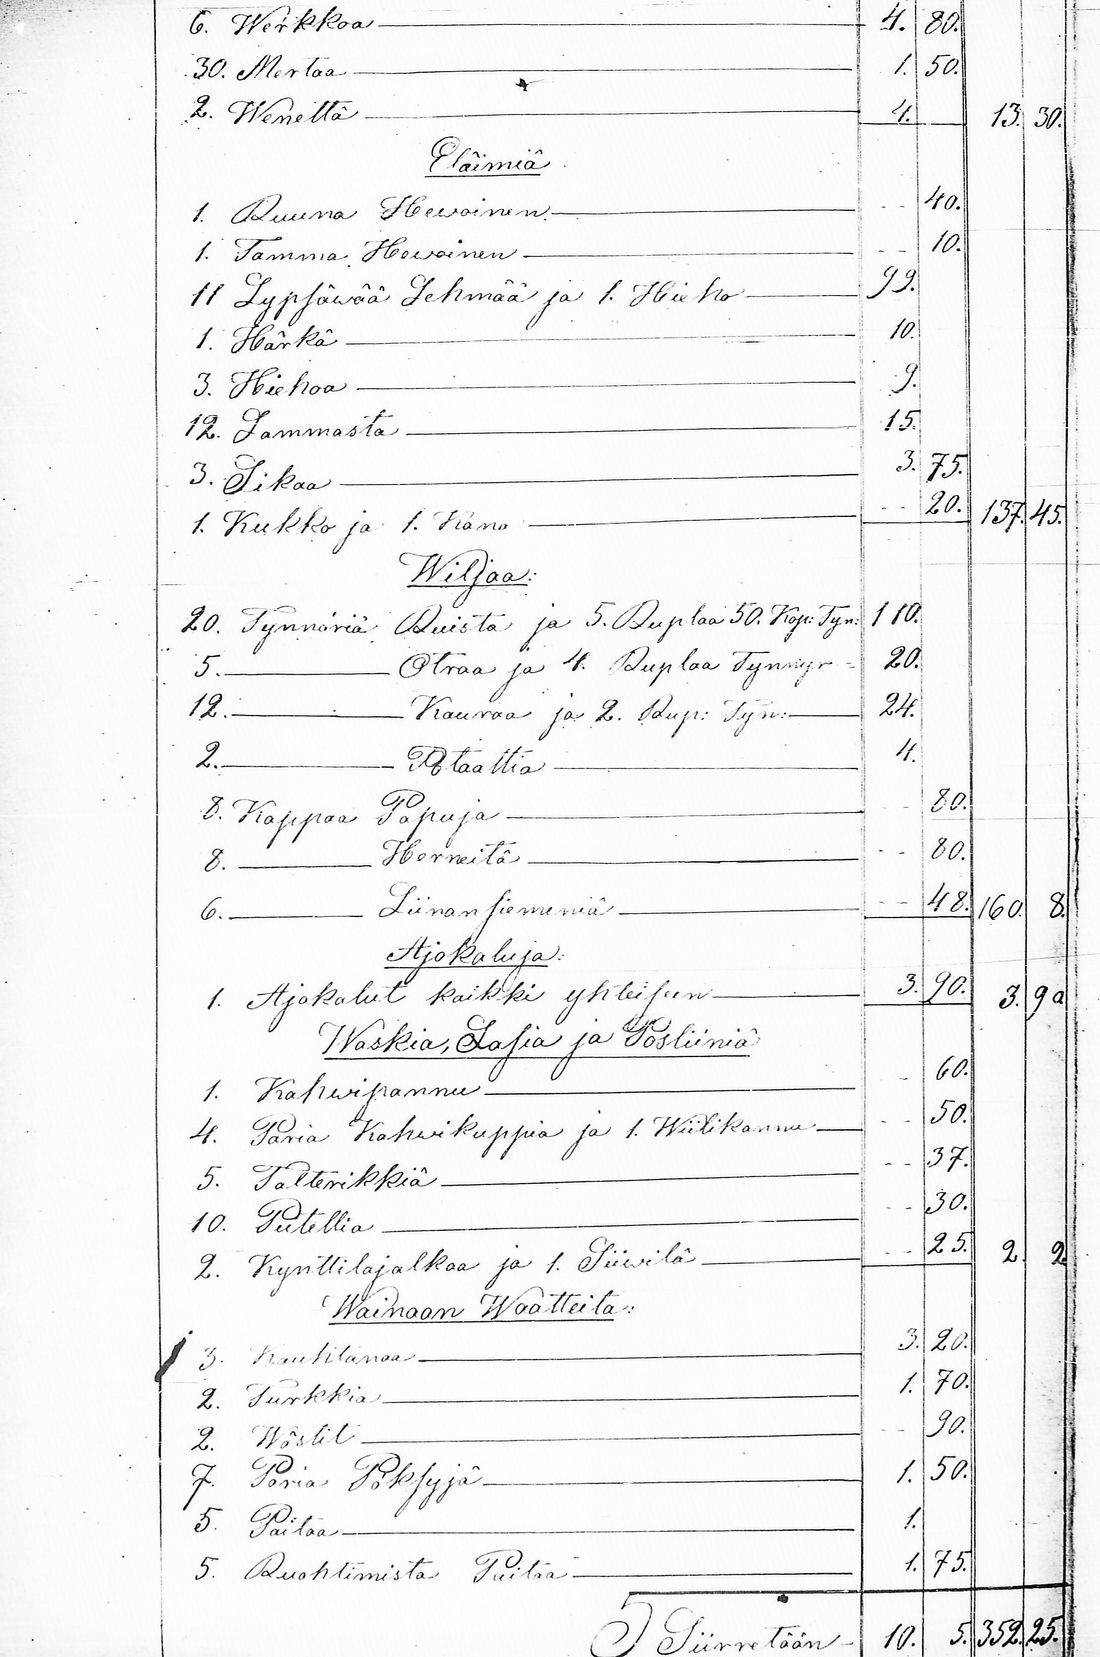 6. Werkkoa 4. 80.
30. Mertaa 1. 50.
2. Wenettä 4. 13. 30.
Eläimiä
1. Ruuna Hewoinen - - 40.
1. Tamma Hewoinen - - 10.
11 Lypsäwää Lehmää ja 1. Hieho 99.
1. Härkä 10.
3. Hiehoa 9.
12. Lammasta 15.
3. Sikaa 3. 75.
1. Kukko ja 1. Kana - - 20. 137. 45.
Wiljaa:
20. Tynnöriä Ruista ja 5. Ruplaa 50. Kop: Tyn: 110.
5. Otraa ja 4. Ruplaa Tynnyr - 20.
12. Kauraa ja 2. Rup: Tyn: 24.
2. Potaattia 4.
8. Kappaa Papuja - - 80.
8. Herneitä - - 80.
6. Liinansiemeniä - - 48. 160. 8.
Ajokaluja:
1. Ajokalut kaikki yhteiseen 3. 90. 3. 90
Waskia, Lasia ja Posliiniä
1. Kahwipannu - 60.
4. Paria Kahwikuppia ja 1. Wiilikannu - - 50.
5. Talterikkiä - - 37.
10. Putellia - - 30.
2. Kynttilajalkaa ja 1. Siiwilä - - 25. 2. 2
Wainaan Waatteita:
3. Kauhtanaa 3. 20.
2. Turkkia 1. 70.
2. Wästit - - 90.
7. Paria Pöksyjä 1. 50.
5. Paitaa 1.
5. Ruohtimista Paitaa 1. 75.
Siirretään - 10. 5. 352. 25.